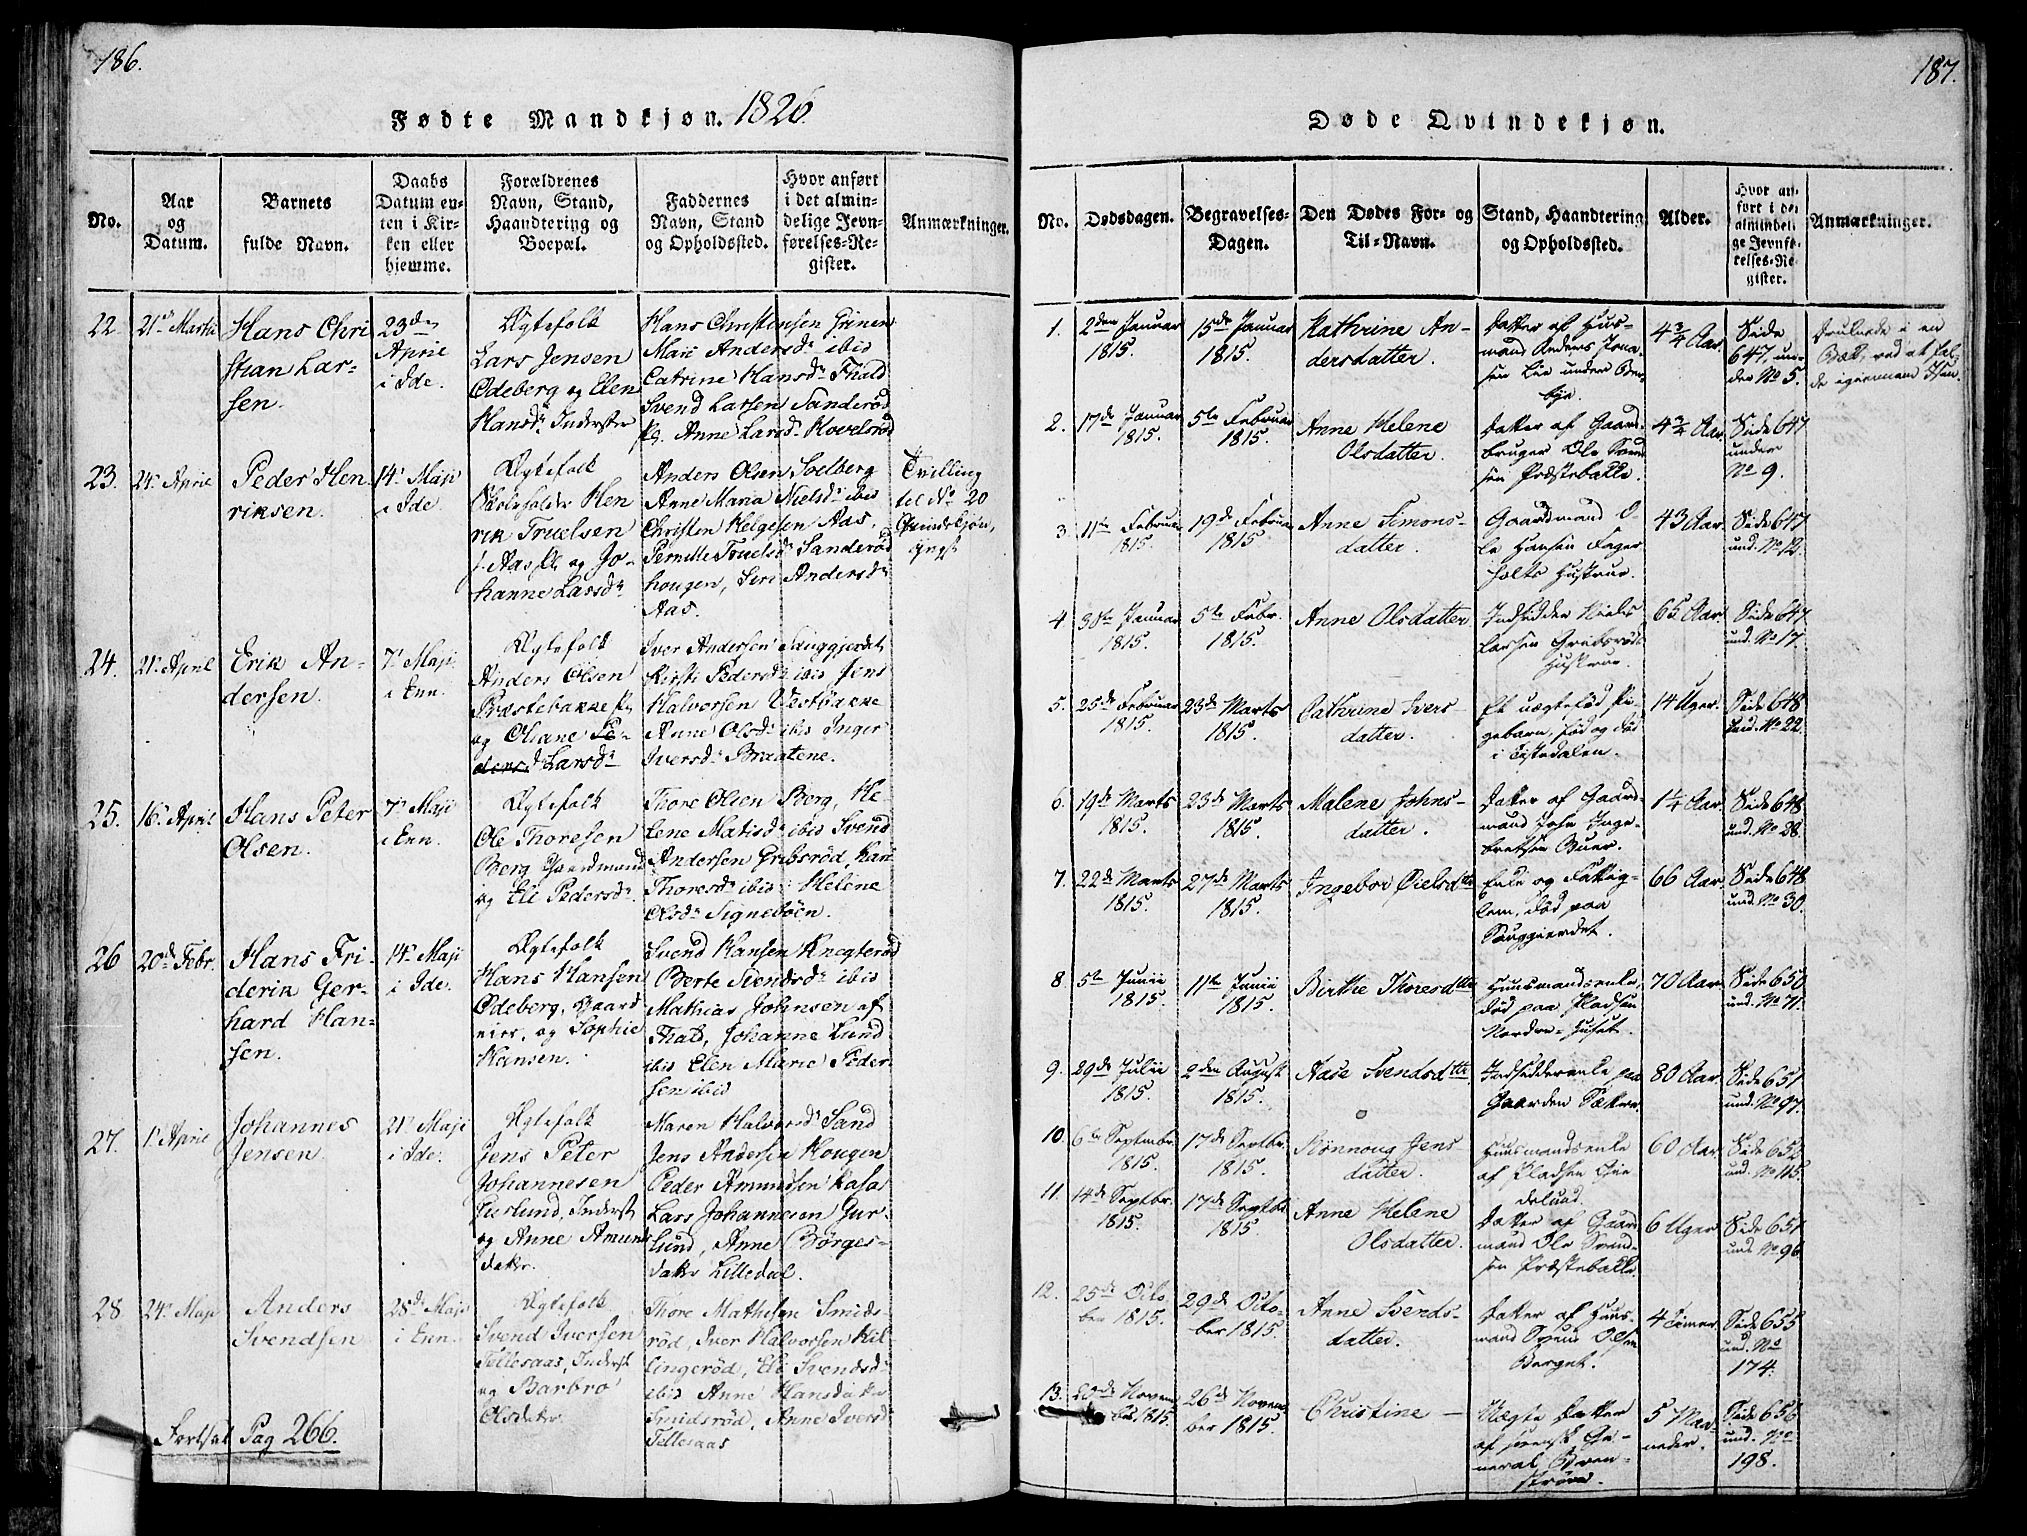 186.
Fødte Mandkjøn. 1826.
No.
Aar
og
Datum.
Barnets
fulde Navn.
Daabs
Datum en-
ten i Kir-
ken eller
hjemme.
Forældrenes
Navn, Stand,
Haandtering og
Boepæl.
Faddernes
Navn, Stand
og Opholdssted.
Hvor anført
i det almin-
delige Jevn-
førelses-Re-
gister.
Anmærkninger.
22
21de Martii
Hans Chri
stian Lar-
sen.
23de
April
i Ide.
Ægtefolk
Lars Jensen
Ødeberg og Elen
Hansdr Inderster
Hans Christensen Grimen
Mari Andersdr ibid
Catrine Hansdr Thald
Svend Larsen Sanderød
Anne Larsdr Hovelsrød
23.
24. April
Peder Hen
riksen.
14. Maji
i Ide
Ægtefolk
Skoleholder Hen
rik Truelsen
Aas og Jo-
hanne Larsdr
Anders Olsen Solberg
Anne Maria Nielsdr ibid
Christen Helgesen Aas,
Pernille Truelsdr Sanderød
hougen, Siri Andersdr
Aas.
Tvilling
til No 20
Qvindekjøn,
yngst
24.
21. April
Erik An-
dersen.
7. Maji
i Enn.
Ægtefolk
Anders Olsen
Præstebakke
og Oliane Pe-
ders Larsdr
Iver Andersen Sauggjerdet
Kirsti Pedersdr ibid Jens
Halvorsen Vestbakke
Anne Olsdr ibid Inger
Iversdr Braatene.
25.
16. April
Hans Peter
Olsen.
7. Maji
i Enn.
Ægtefolk
Ole Thoresen
Berg Gaardmand
og Eli Pedersdr
Thore Olsen Berg, He-
lene Matisdr ibid Svend
Andersen Gribsrød, Kari
Thoresdr ibid Helene
Olsdr Signebøen.
26
20de Febr.
Hans Fri-
derik Ger-
hard Han-
sen.
14. Maji
i Ide.
Ægtefolk
Hans Hansen
Ødeberg, Gaard
eier, og Sophie
Hansen.
Svend Hansen Knegterød
Berte Svendsdr ibid
Mathias Johnsen af
Thald, Johanne Lund
ibid Elen Marie Peder
sen ibid
27.
1. April
Johannes
Jensen.
21. Maji
i Ide.
Ægtefolk
Jens Peter
Johannesen
Inderst
og Anne Amunds
datter.
Maren Halvorsdr Sand
Jens Andersen Hougen
Peder Amundsen Kasa
Lars Johannesen Jur-
lund, Anne Børges-
datter Lilledal.
28
24. Maji
Anders
Svendsen
28de Maji
i Enn.
Ægtefolk
Svend Iversen
Tellesaas, Inderst
og Barbro
Olsdatter.
Thore Mathesen Smids-
rød, Iver Halvorsen Kil-
lingerød, Eli Svendsdr
ibid Anne Hansdatter
Smidsrød, Anne Iversdr
Tellesaas
Fortsat Pag 266.
187.
Døde Qvindekjøn.
No.
Dødsdagen.
Begravelses-
Dagen.
Den Dødes For- og
Til-Navn.
Stand, Haandtering
og Opholdssted.
Alder.
Hvor an-
ført i det
almindeli-
ge Jevnfø-
relses-Re-
gister.
Anmærkninger.
1.
2den Januar
1815.
15de Januar
1815.
Kathrine An-
dersdatter.
Datter af Huus-
mand Anders Jona-
sen Lie under Ber-
bye.
4 3/4 Aar.
Side
647 un-
der No 5.
Druknede i en
Bæk, ved at fal-
de igiennem Isen.
2.
17de Januar
1815.
5te Februar
1815.
Anne Helene
Olsdatter.
Datter af Gaard-
bruger Ole Svend-
sen Præstebakke.
4 3/4 Aar.
Side 647
under
No 9.
3
11te Februar
1815.
19de Februar
1815.
Anne Simons-
datter.
Gaardmand O-
le Hansen Fager
holts Hustrue.
43 Aar.
Side 647
und. No 12.
4
30te Januar
1815.
5te Febr.
1815.
Anne Olsdatter
Indsidder Niels
Larsen Gribsrøds
Hustrue.
65 Aar.
Side 647
und. No 17.
5.
25de Februar
1815.
23de Marts
1815.
Cathrine Ivers-
datter.
Et uægtefød Pi-
gebarn, fød og død
i Tistedalen.
14 Uger.
Side 648
und. No 22.
6.
19de Marts
1815.
23de Marts
1815.
Malene Johns-
datter.
Datter af Gaard-
mand John Inge-
bretsen Buer.
1 1/4 Aar.
Side 648
und. No 28.
7.
22de Marts
1815.
27de Marts
1815.
Ingebor Øielsdtr
Enke og Fattig-
lem, død paa
Sauggierdet.
66 Aar.
Side 648
und. No 30.
8
5te Junii
1815.
11te Junii
1815.
Birthe Iversdtr
Huusmandsenke,
død paa Pladsen
Nordre-Huset.
70 Aar.
Side 650
und. No 71.
9.
29de Julii
1815.
2den August
1815.
Aase Svendsdtr
Indsidderenke paa
Gaarden Sækken.
80 Aar.
Side 651
und. No 97.
10.
6te Septmbr.
1815.
17de Septbr.
1815.
Rønnoug Jens
datter.
Huusmandsenke
af Pladsen
60 Aar.
Side 652
und. No 115.
11.
14de Septbr.
1815.
17de Septbr.
1815.
Anne Helene
Olsdatter.
Datter af Gaard
mand Ole Svend-
sen Præstebakke.
6 Uger.
Side 651
und No 96.
12.
25de Octo
ber 1815.
29de Octo-
ber 1815.
Anne Svends-
datter.
Datter af Huus-
mand Svend Olsen
Berget.
4 Timer.
Side 655
und. No
174.
13.
20de Novem
ber 1815.
26de Novem-
ber 1815.
Christine —
Uægte Datter
af svensk Ge-
neral Bren-
strøm.
5 Maa-
neder.
Side 656
und. No
198.